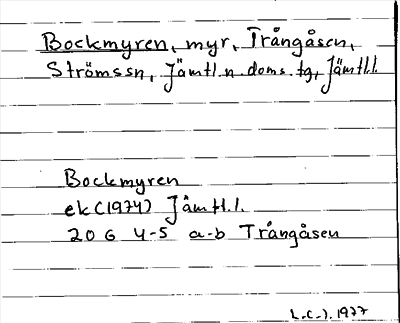 Bockmyren, myr, Trångåsen,
Strömssn, Jämtl.n.doms.tg, Jämtl.l.
Bockmyren
ek(1974) Jämtl.l.
20G 4-5 a-b Trångåsen
L.C.J. 1977